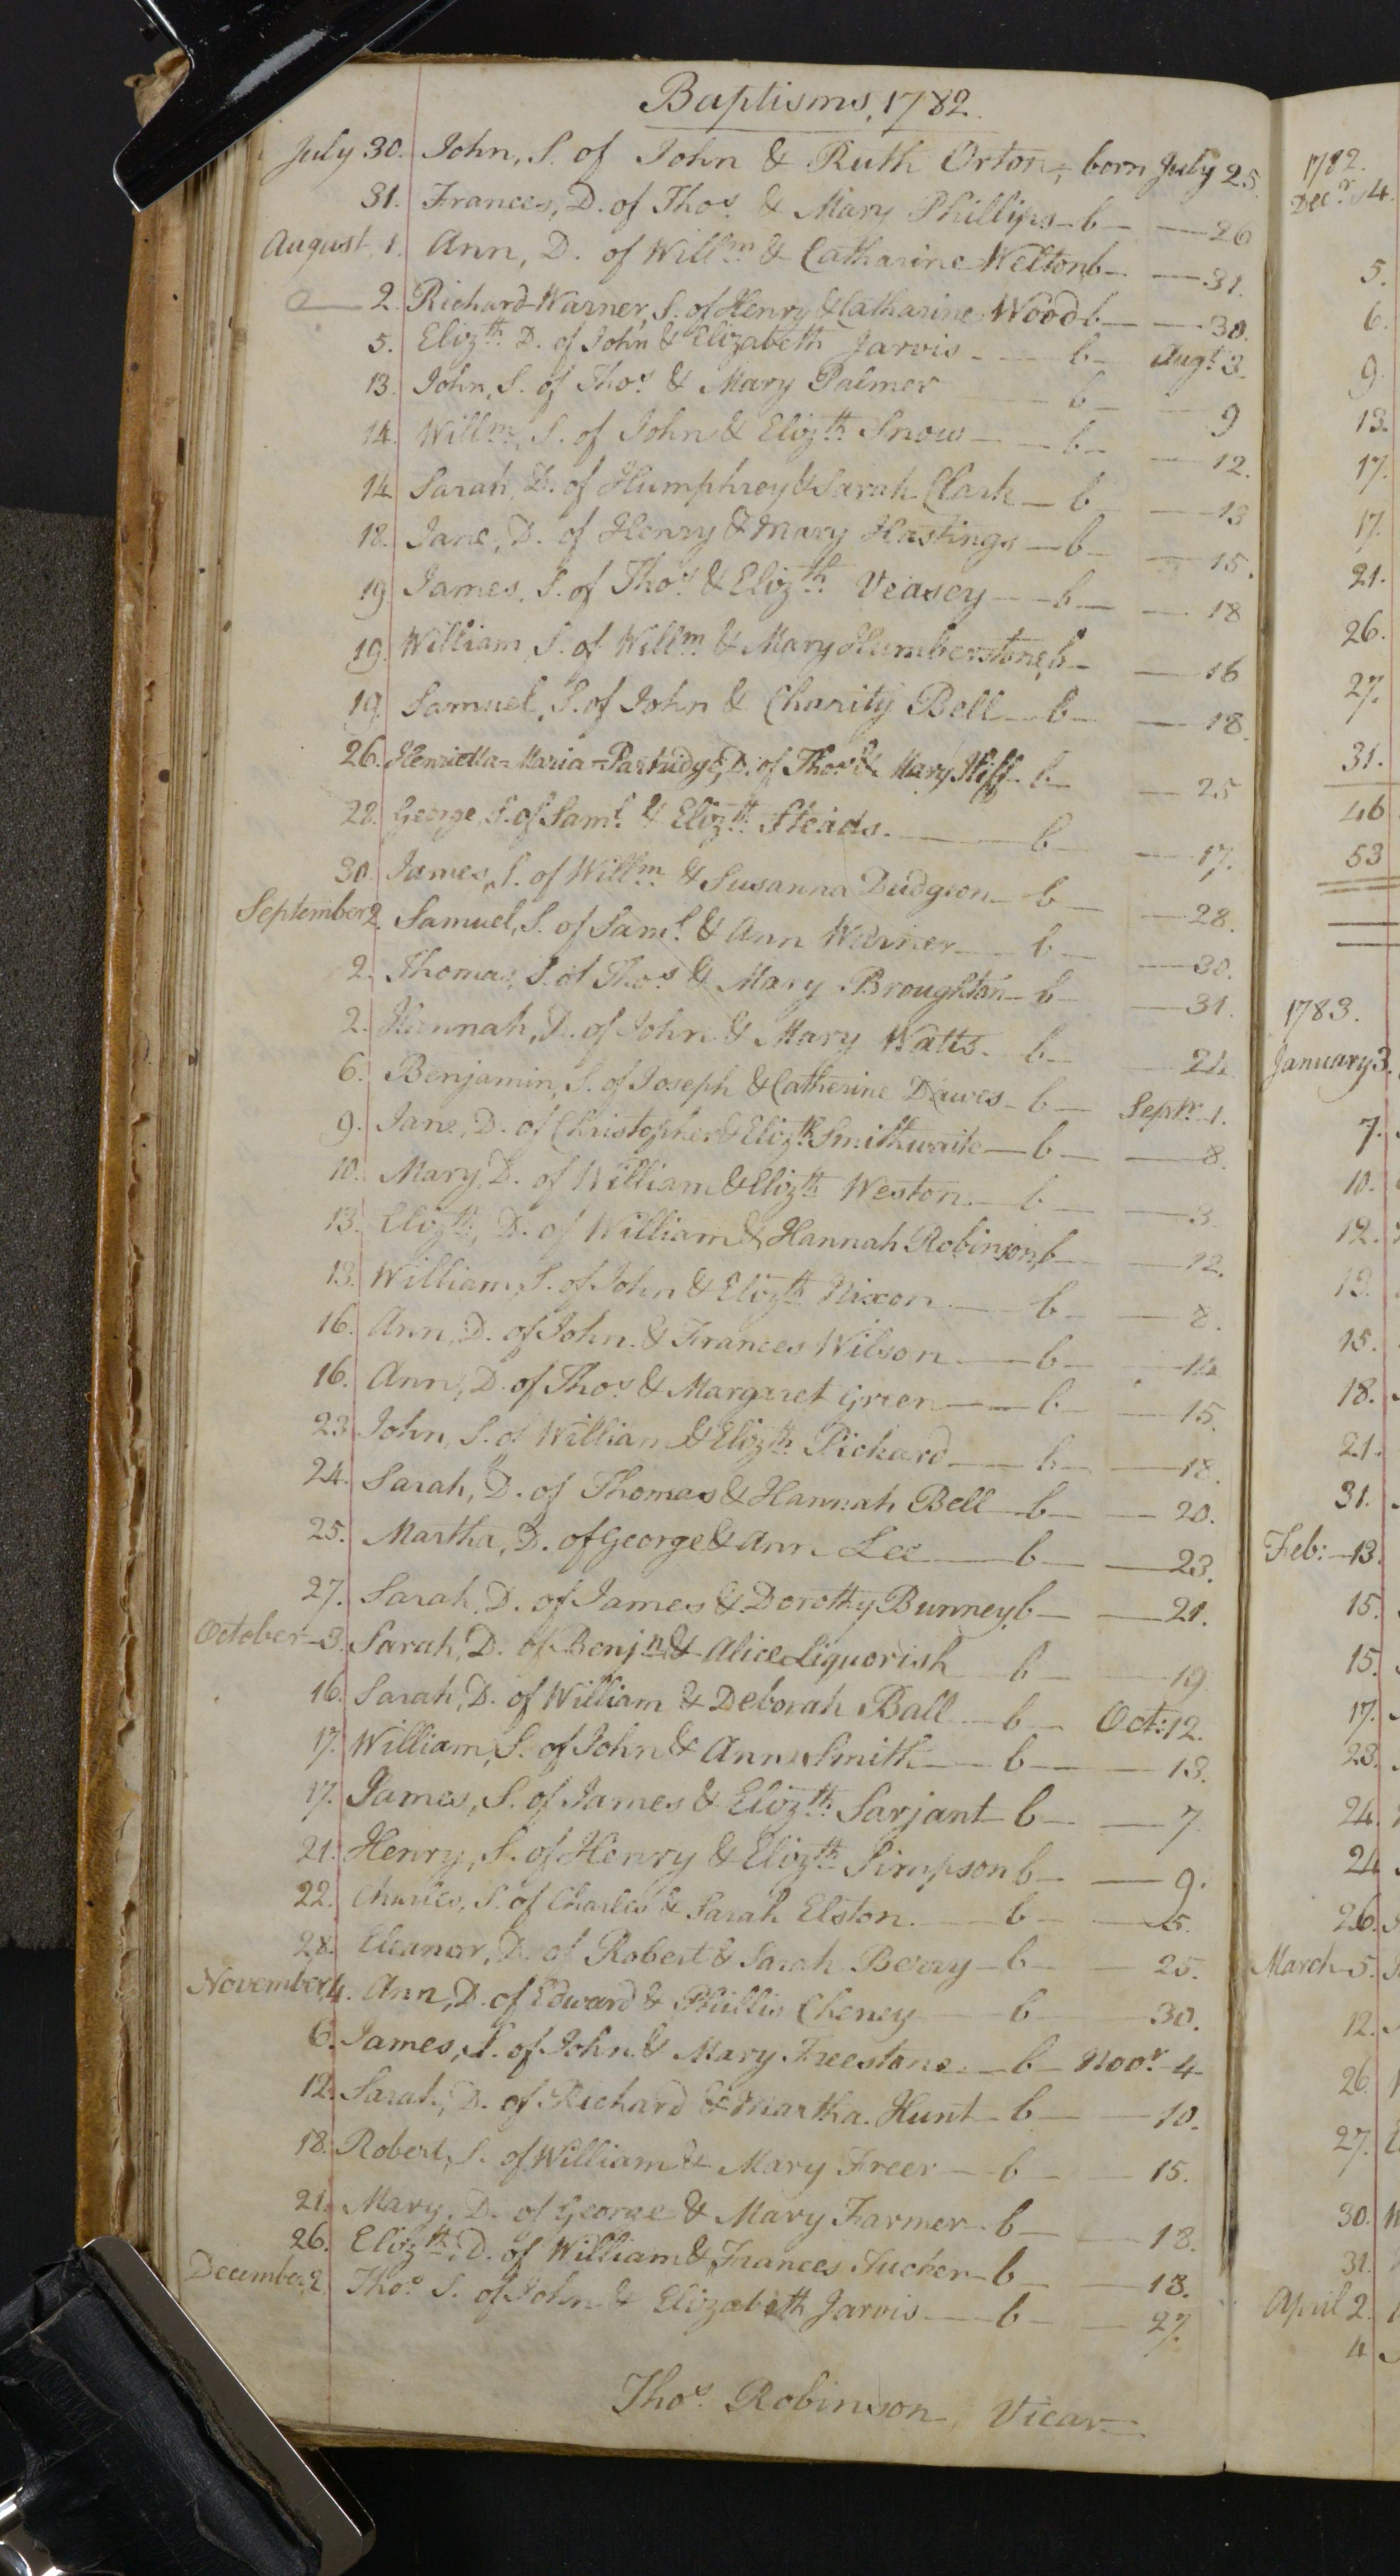 Baptisms, 1782.
July 30. John, S. of John & Ruth Orton, born July 25.
31. Frances, D. of Thos. & Mary Phillips - b - — 26
August 1. Ann, D. of Willm & Catharine Welton b - — 31.
2. Richard-Warner, S. of Henry & Catharine Wood b — — 30.
5. Elizth. D. of John & Elizabeth Jarvis - — b - Augt. 3.
13. John, S. of Thos. & Mary Palmer — b - — 9
14. Willm, S. of John & Elizth. Snow — b - — 12.
14. Sarah, D. of Humphrey & Sarah Clark — b — 13
18. Jane, D. of Henry & Mary Hastings — b - — 15.
19. James, S. of Thos. & Elizth. Veasey — b — — 18
19. William, S. of Willm. & Mary Humberstone, b - — 16
19. Samuel, S. of John & Charity Bell — b - — 18.
26. Henrietta-Maria-Partridge, D. of Thos. & Mary Iliff - b - — 25
28. George, S. of Saml. & Elizth. Steads. — b - — 17.
30. James, S. of Willm. & Susanna Dudgeon - b - — 28.
September 2. Samuel, S. of Saml. & Ann Warner — b - — 30.
2. Thomas, S. of Thos. & Mary Broughton - b - — 31.
2. Hannah, D. of John & Mary Watts. b - — 24.
6. Benjamin, S. of Joseph & Catherine Dawes - b — Septr. 1.
9. Jane, D. of Christopher & Elizth Smithwaite — b — — 8.
10. Mary, D. of William & Elizth. Weston — b — — 3.
13. Elizth., D. of William & Hannah Robinson, b — — 12.
13. William, S. of John & Elizth Nixon — b - — 8.
16. Ann, D. of John & Frances Wilson — b - — 14
16. Ann, D. of Thos. & Margaret Green — b - — 15.
23. John, S. of William & Elizth. Pickard — b - — 18.
24. Sarah, D. of Thomas & Hannah Bell — b - — 20.
25. Martha, D. of George & Ann Lee — b - — 23.
27. Sarah, D. of James & Dorothy Bunney, b - — 21.
October - 3. Sarah, D. of Benjn. & Alice Liquorish b - — 19
16. Sarah, D. of William & Deborah Ball — b - Oct: 12.
17. William, S. of John & Ann Smith — b - — 13.
17. James, S. of James & Elizth. Sarjant - b - — 7
21. Henry, S. of Henry & Elizth. Simpson b - — 9.
22. Charles, S. of Charles & Sarah Elston. — b - — 5.
28. Eleanor, D. of Robert & Sarah Berry - b - — 25.
November 4. Ann, D. of Edward & Phillis Cheney — b - — 30.
6. James, S. of John & Mary Freestone — b - Novr. 4
12. Sarah, D. of Richard & Martha Hunt - b - — 10.
18. Robert, S. of William & Mary Freer — b - — 15.
21. Mary, D. of George & Mary Farmer. b — 18.
26. Elizth. D. of William & Frances Tucker - b - — 13.
December 2. Thos. S. of John & Elizabeth Jarvis — b - — 27.
Thos. Robinson, Vicar
1782.
Decr. 4.
5.
6.
9.
13.
17.
17.
21.
26.
27.
31.
46
53
1783.
January 3.
7.
10.
12.
13.
15.
18.
21.
31.
Feb: - 13.
15.
15.
17.
23.
24.
24
26.
March - 5.
12.
26
27.
30.
31.
April 2.
4